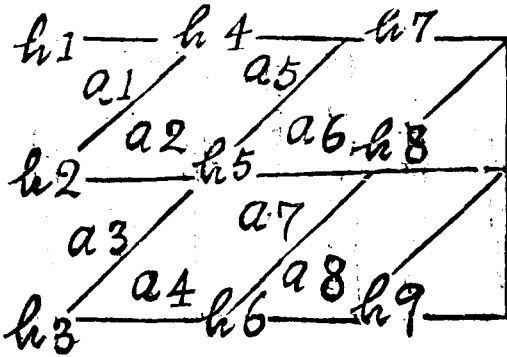 h1 h4 h7
a1 a5
a2 a6 h8
h2 h5
a3 a7
a4 a8
h3 h6 h9